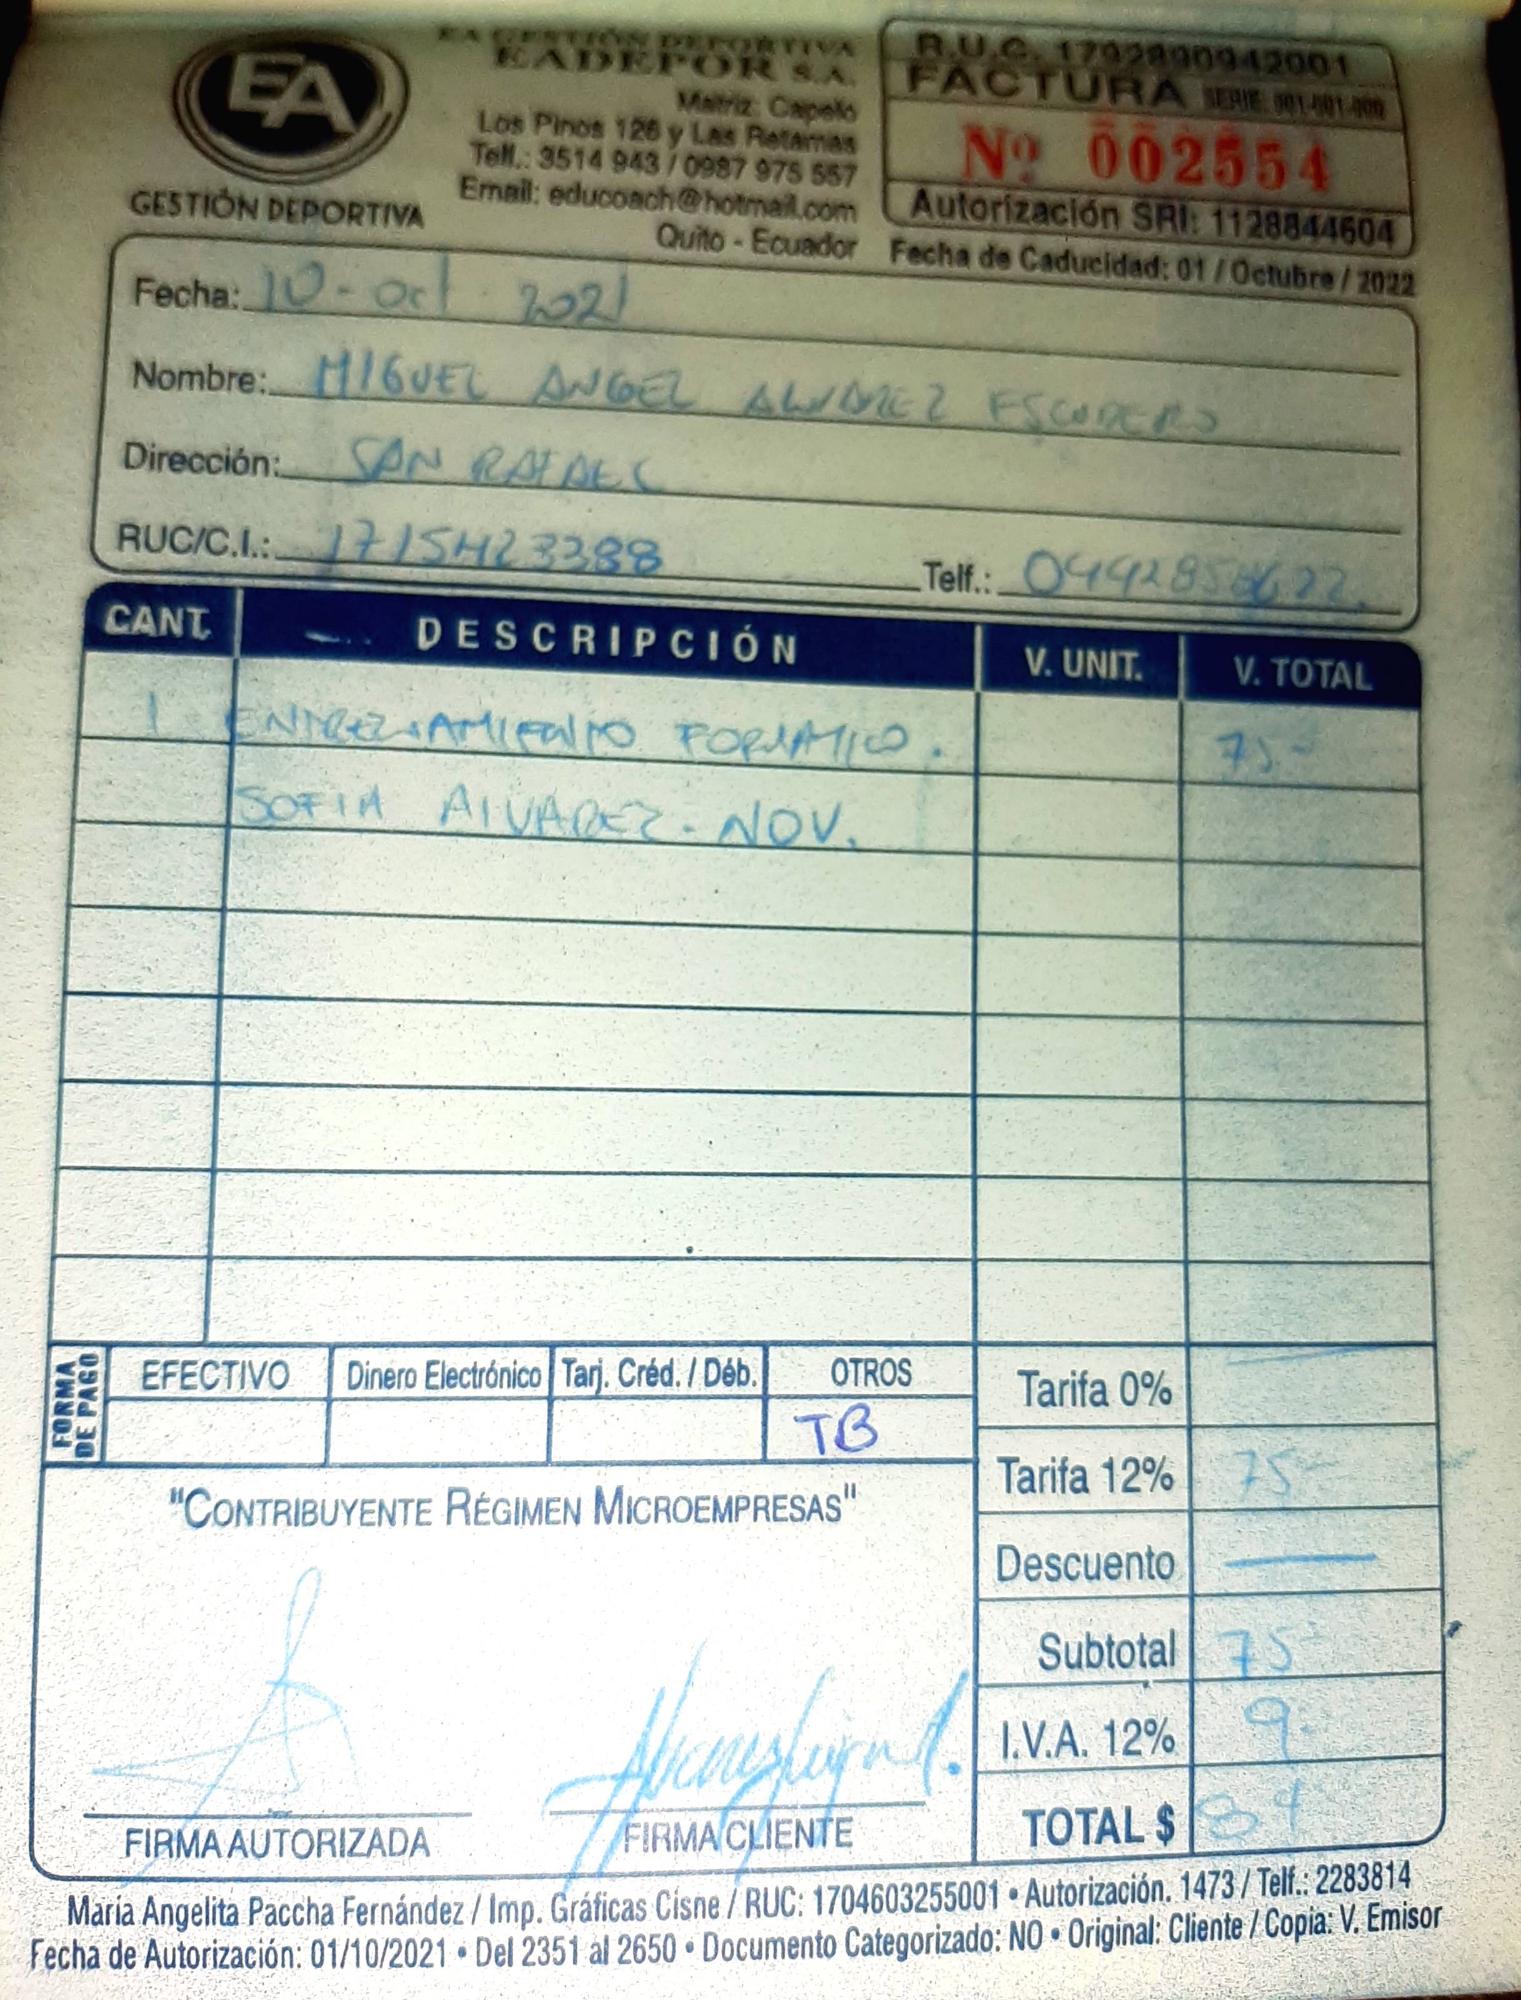 EA
GESTIÓN DEPORTIVA
EA GESTIÓN DEPORTIVA
EADEPOR S.A.
Matriz: Capelo
Los Pinos 126 y Las Retamas
Telf.: 3514 943 / 0987 975 557
Email: educoach@hotmail.com
Quito - Ecuador
R.U.C. 1792890942001
FACTURA SERIE: 001-001-000
Nº 002554
Autorización SRI: 1128844604
Fecha de Caducidad: 01 / Octubre / 2022
Fecha: 10 - oct - 2021
Nombre: MIGUEL ANGEL ALVAREZ ESCUDERO
Dirección: SAN RAFAEL
RUC/C.I.:
Telf.:
CANT. DESCRIPCIÓN V. UNIT. V. TOTAL
1 ENTRENAMIENTO FORMATIVO. 75.-
SOFIA ALVAREZ - NOV.
FORMA DE PAGO
EFECTIVO Dinero Electrónico Tarj. Créd. / Déb. OTROS
TB
Tarifa 0%
Tarifa 12% 75-
Descuento
Subtotal 75-
I.V.A. 12% 9.-
TOTAL $ 84
"CONTRIBUYENTE RÉGIMEN MICROEMPRESAS"
FIRMA AUTORIZADA FIRMA CLIENTE
María Angelita Paccha Fernández / Imp. Gráficas Cisne / RUC: 1704603255001 • Autorización. 1473 / Telf.: 2283814
Fecha de Autorización: 01/10/2021 • Del 2351 al 2650 • Documento Categorizado: NO • Original: Cliente / Copia: V. Emisor